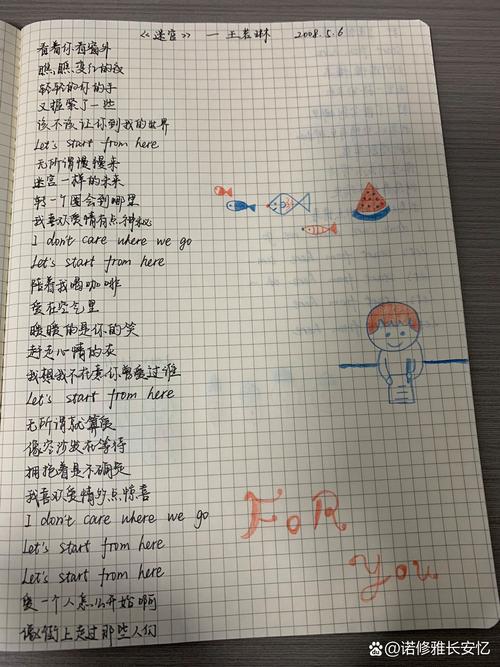 《迷宫》 — 王若琳 2008.5.6
看看你看窗外
瞧,瞧,变红的夜
轻轻的你的手
又握紧了一些
该不该让你到我的世界
Let's start from here
无所谓慢慢来
迷宫一样的未来
转一个圈会到哪里
我喜欢爱情有点神秘
I don't care where we go
Let's start from here
陪着我喝咖啡
爱在空气里
暖暖的是你的笑
赶走心情的灰
我想我不在意你曾爱过谁
Let's start from here
无所谓就算爱
像空沙发在等待
拥抱着是不确定
我喜欢爱情多点惊喜
I don't care where we go
Let's start from here
Let's start from here
爱一个人怎么开始啊
像街上走过那些人们
FoR
You
诺修雅长安忆